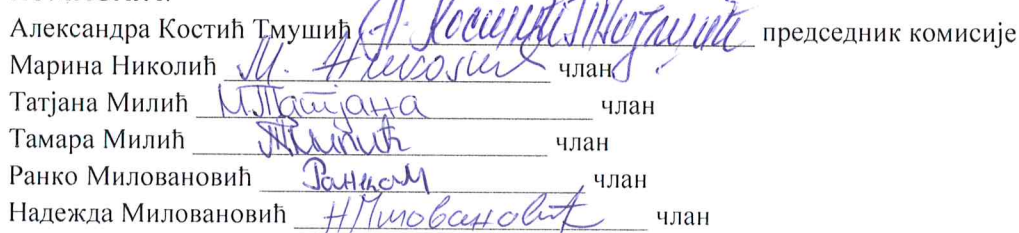 Александра Костић Тмушић А. Костић Тмушић председник комисије
Марина Николић М. Николић члан
Татјана Милић М Татјана члан
Тамара Милић ТМилић члан
Ранко Миловановић Ранко М члан
Надежда Миловановић НМиловановић члан